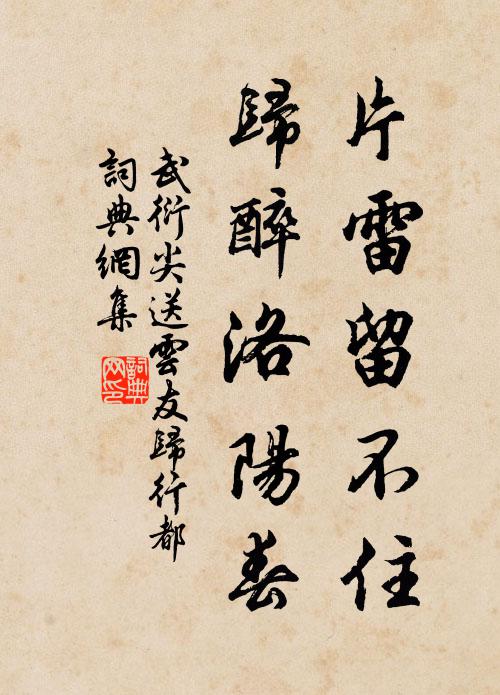 片雷留不住
歸醉洛陽春
武衍尖送雲友歸行都
詞典網集
詞典
网印